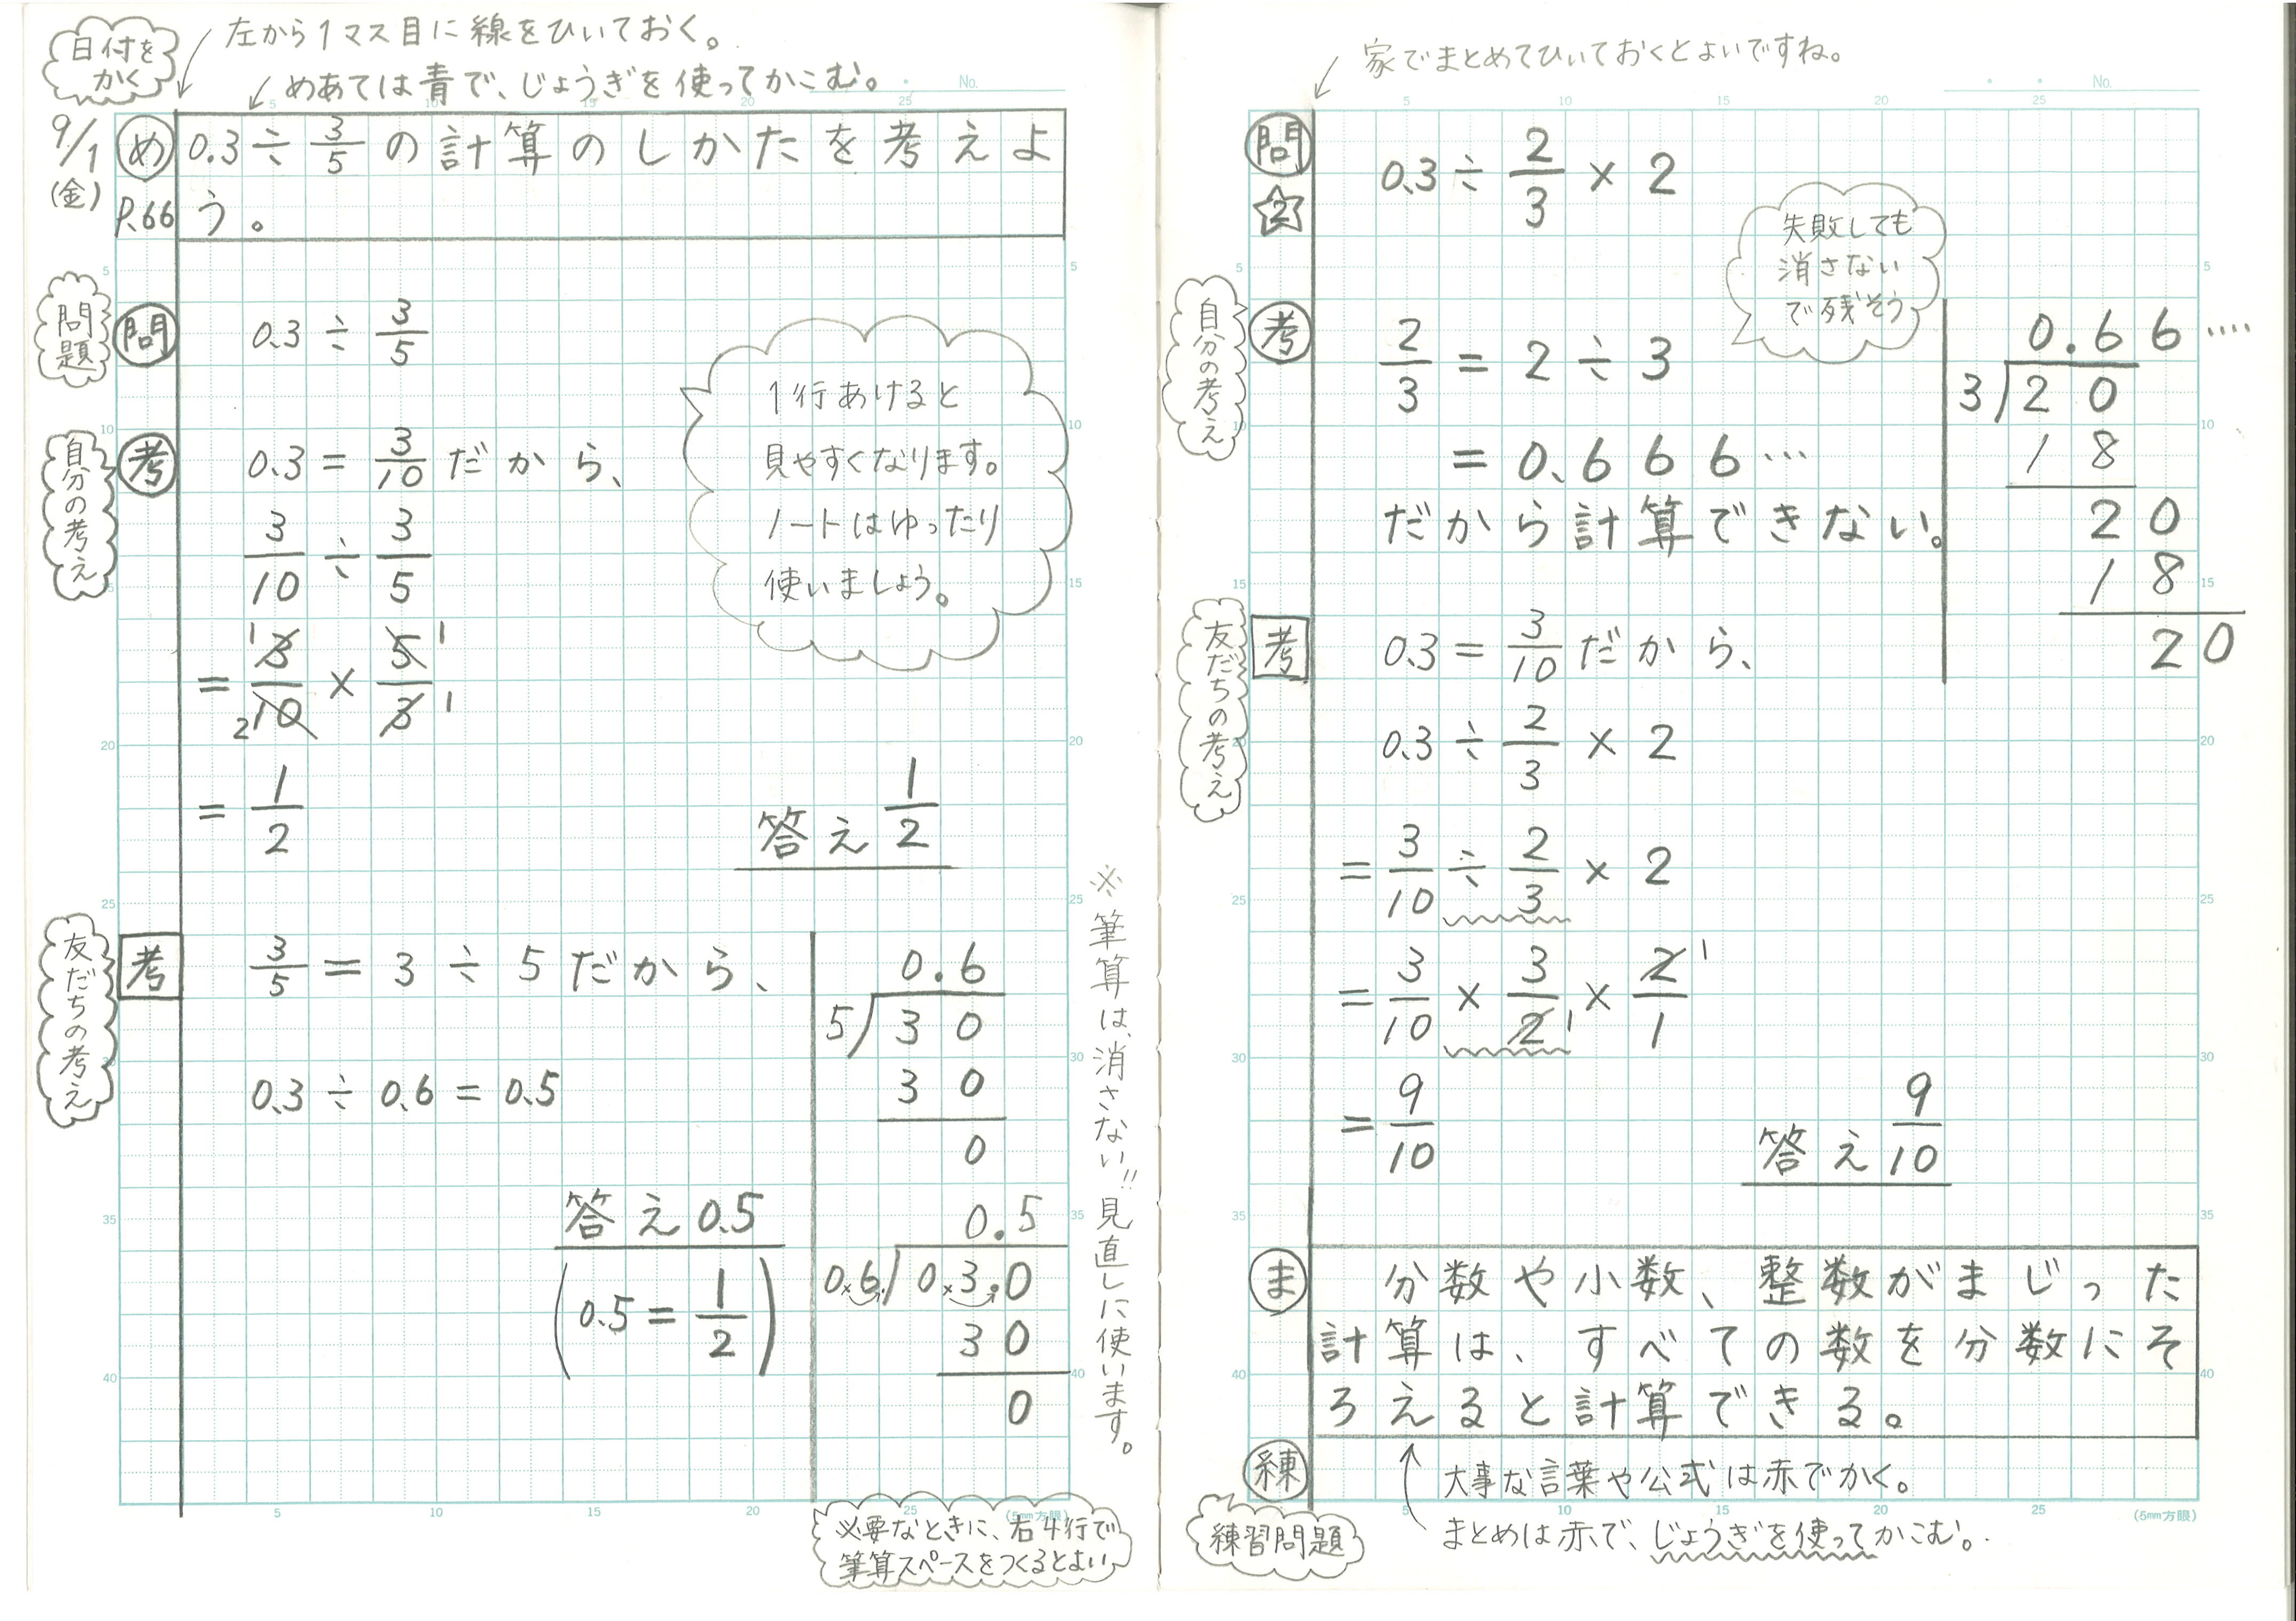 日付を
かく
左から1マス目に線をひいておく。
めあては青で、じょうぎを使ってかこむ。
No.
9/1
(金)
め 0.3÷3/5の計算のしかたを考えよ
P.66 う。
問題
問 0.3÷3/5
自分の考え
考 0.3=3/10だから、
3/10÷3/5
=3/10×5/3
1 1
2 1
=1/2
答え 1/2
1行あけると
見やすくなります。
ノートはゆったり
使いましょう。
友だちの考え
考 3/5=3÷5だから、
0.3÷0.6=0.5
答え 0.5
(0.5=1/2)
0.6
5)30
30
0
0.5
0.6)0.3.0
30
0
※筆算は、消さない!!見直しに使います。
必要なときに、右4行で
筆算スペースをつくるとよい
5 10 15 20 25
(5mm方眼)
家でまとめてひいておくとよいですね。
No.
問 0.3÷2/3×2
2
失敗しても
消さない
で残そう
自分の考え
考 2/3=2÷3
=0.666…
だから計算できない。
0.66….
3)20
18
20
18
20
友だちの考え
考 0.3=3/10だから、
0.3÷2/3×2
=3/10÷2/3×2
=3/10×3/2×2/1
1
1
=9/10
答え 9/10
ま 分数や小数、整数がまじった
計算は、すべての数を分数にそ
ろえると計算できる。
練
練習問題
大事な言葉や公式は赤でかく。
まとめは赤で、じょうぎを使ってかこむ。
5 10 15 20 25
(5mm方眼)